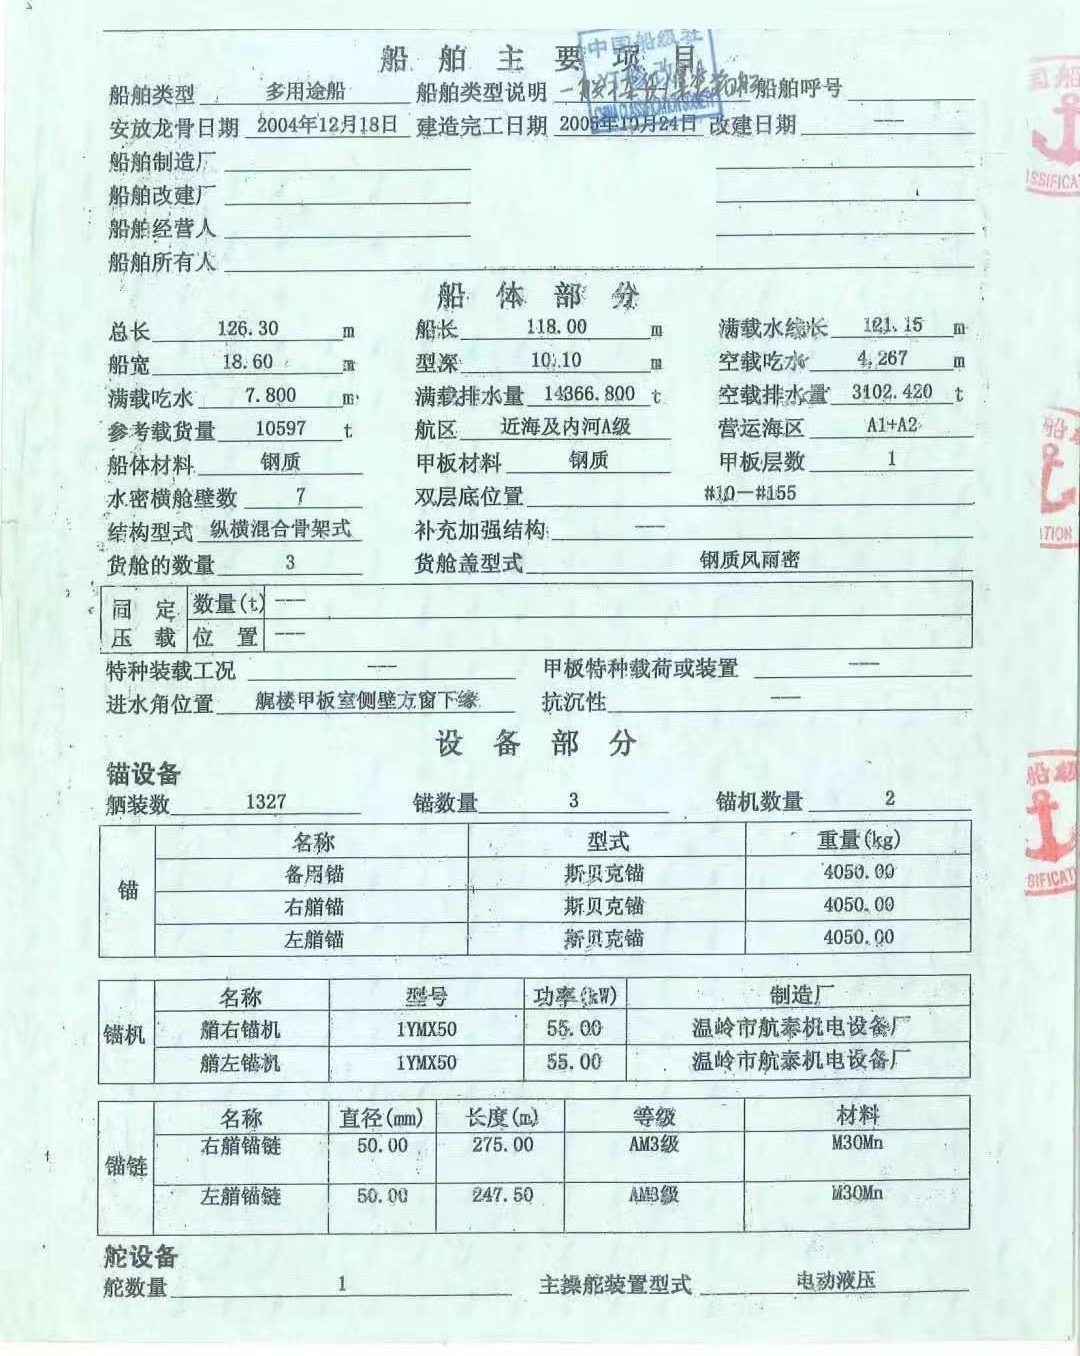 船舶主要项目
中国船级社
船舶类型 多用途船 船舶类型说明 船舶呼号
安放龙骨日期 2004年12月18日 建造完工日期 2005年10月24日 改建日期 ---
船舶制造厂
船舶改建厂
船舶经营人
船舶所有人
船体部分
总长 126.30 m 船长 118.00 m 满载水线长 121.15 m
船宽 18.60 m 型深 10.10 m 空载吃水 4.267 m
满载吃水 7.800 m 满载排水量 14366.800 t 空载排水量 3102.420 t
参考载货量 10597 t 航区 近海及内河A级 营运海区 A1+A2
船体材料 钢质 甲板材料 钢质 甲板层数 1
水密横舱壁数 7 双层底位置 #10-#155
结构型式 纵横混合骨架式 补充加强结构 ---
货舱的数量 3 货舱盖型式 钢质风雨密
固定 数量(t) ---
压载 位置 ---
特种装载工况 --- 甲板特种载荷或装置 ---
进水角位置 艉楼甲板室侧壁方窗下缘 抗沉性 ---
设备部分
锚设备
舾装数 1327 锚数量 3 锚机数量 2
锚 名称 型式 重量(kg)
备用锚 斯贝克锚 4050.00
右艏锚 斯贝克锚 4050.00
左艏锚 斯贝克锚 4050.00
锚机 名称 型号 功率(kW) 制造厂
艏右锚机 1YMX50 55.00 温岭市航泰机电设备厂
艏左锚机 1YMX50 55.00 温岭市航泰机电设备厂
锚链 名称 直径(mm) 长度(m) 等级 材料
右艏锚链 50.00 275.00 AM3级 M30Mn
左艏锚链 50.00 247.50 AM3级 M30Mn
舵设备
舵数量 1 主操舵装置型式 电动液压